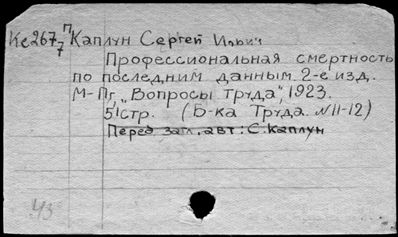 Кс267 П Каплун Сергей Ильич
7
Профессиональная смертность
по последним данным. 2-е изд.
М-Пг, "Вопросы Труда", 1923.
51стр. (Б-ка Труда. №11-12)
Перед загл. авт: С. Каплун
43